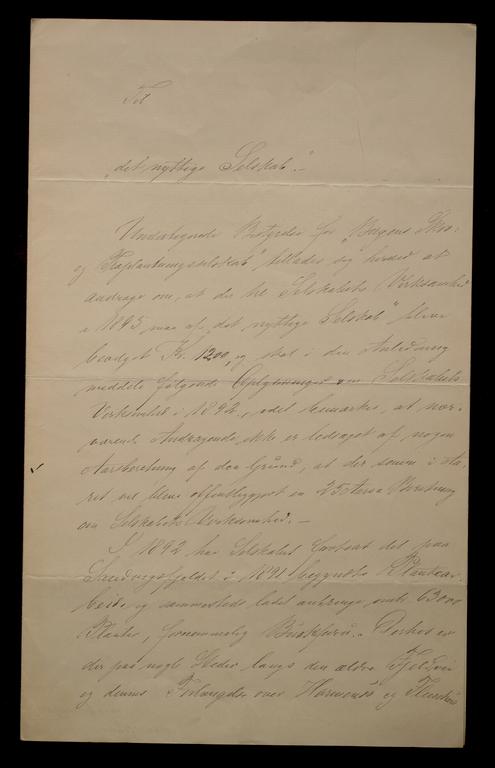 Til
"det nyttige Selskab".-
Undertegnede Bestyrelse for "Bergens Skov-
og Træplantningsselskab" tillader sig herved at
andrage om, at der til Selskabets Virksomhed
i 1893 maa af "det nyttige Selskab" blive
bevilget Kr. 1200, og skal i den Anledning
meddele følgende Oplysninger om Selskabets
Virksomhed i 1892, idet bemærkes, at nær-
værende Andragende ikke er ledsaget af nogen
Aarsberetning af den Grund, at der senere i Aa-
ret vil blive offentliggjort en 25 Aars Beretning
om Selskabets Virksomhed.-
I 1892 har Selskabet fortsat det paa
i 1891 begyndte Plantear-
beide og sammesteds ladet anbringe omtr. 63000
Planter, fornemmelig Buskfuru. Derhos er
der paa nogle Steder langs den ældre Fjeldvei
og dennes Forlængelse over